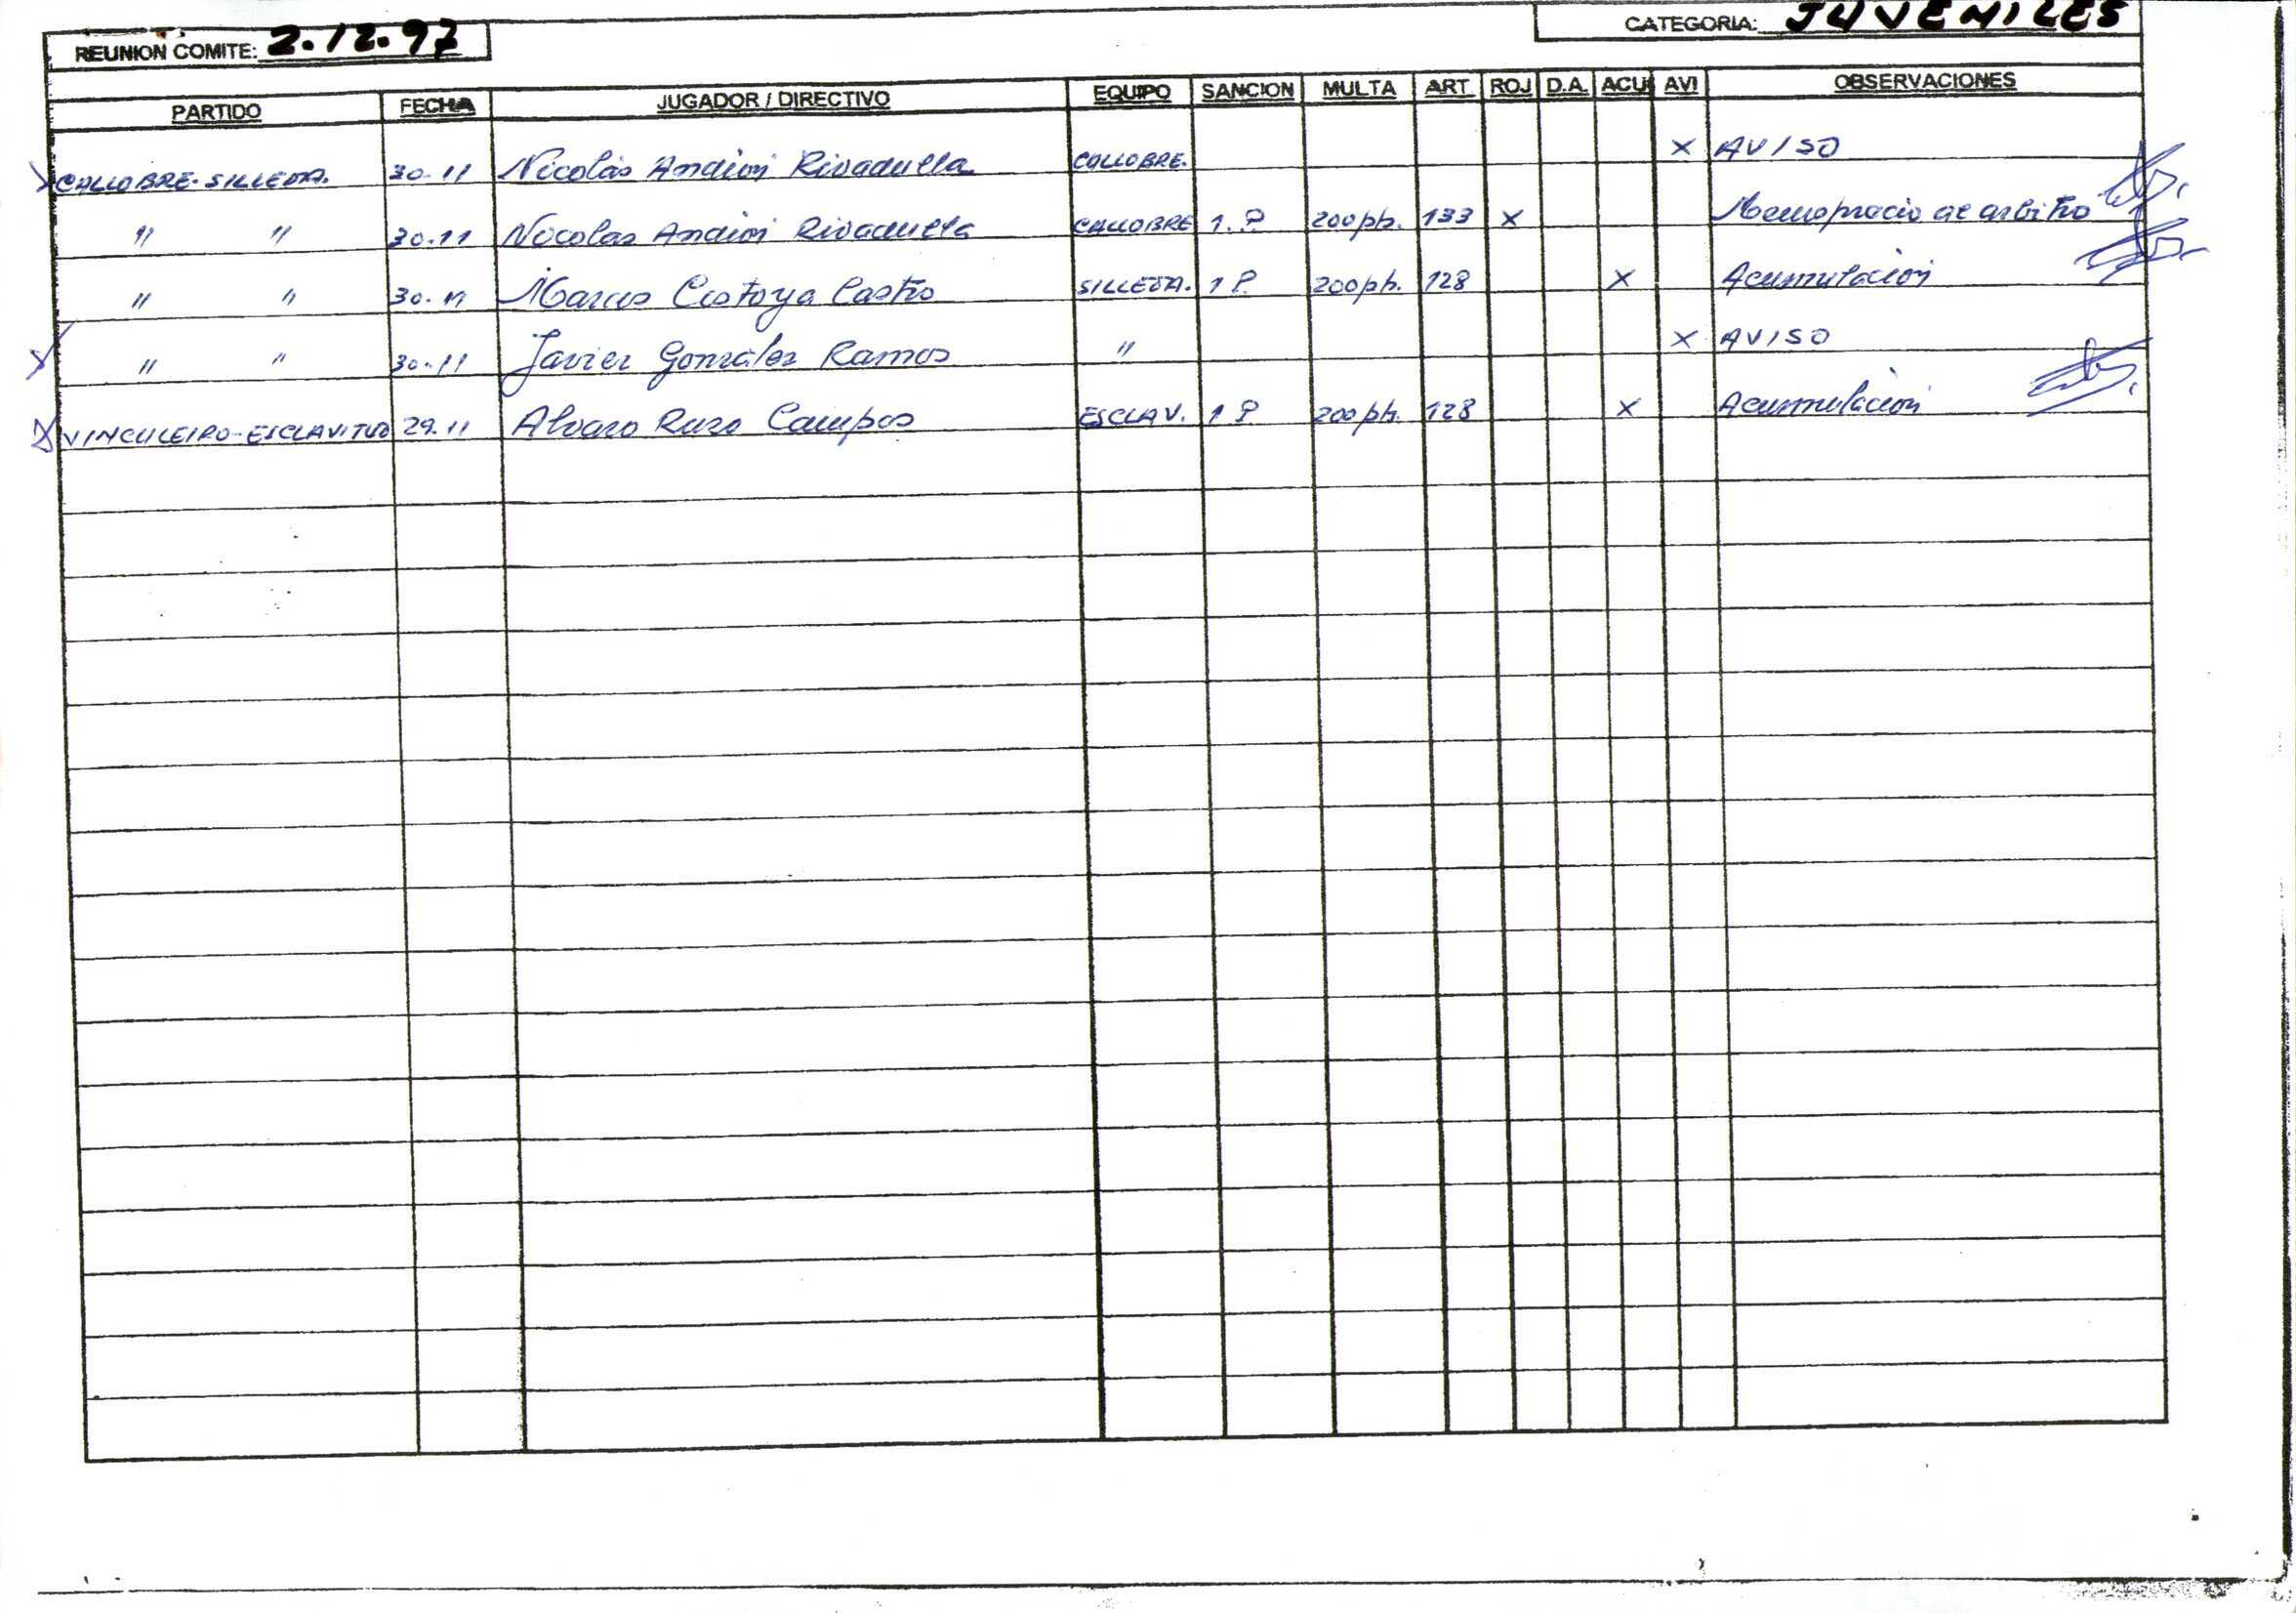 REUNION COMITE: 2.12.97
CATEGORIA: JUVENILES
PARTIDO FECHA JUGADOR / DIRECTIVO EQUIPO SANCION MULTA ART ROJ D.A. ACU AVI OBSERVACIONES
CALLOBRE-SILLEDA. 30-11 Nicolás Andión Rivadulla CALLOBRE. X AVISO
" " 30.11 Nicolas Andión Rivadulla CALLOBRE 1.P 200pts. 133 X Menosprecio al arbitro
" " 30.11 Marcos Castro SILLEDA. 1 P. 200pts. 128 X Acumulación
" " 30-11 Javier González Ramos " X AVISO
VINCULEIRO-ESCLAVITUD 29.11 Alvaro Raso Campos ESCLAV. 1 P. 200pts. 128 X Acumulación